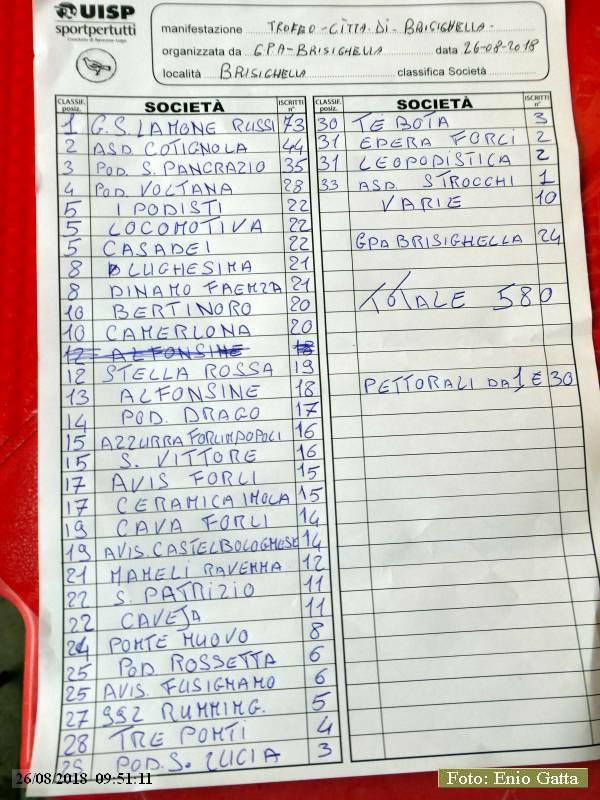 UISP
sportpertutti
manifestazione TROFEO - CITTA DI - BRISIGHELLA -
organizzata da G.P.A - BRISIGHELLA data 26-08-2018
località BRISIGHELLA classifica Società
CLASSIF. posiz. SOCIETÀ ISCRITTI n°
1 G.S. LAMONE RUSSI 73
2 ASD COTIGNOLA 44
3 POD. S. PANCRAZIO 35
4 POD. VOLTANA 28
5 I PODISTI 22
5 LOCOMOTIVA 22
5 CASADEI 22
8 LUGHESINA 21
8 DINAMO FAENZA 21
10 BERTINORO 20
10 CAMERLONA 20
12 ALFONSINE 18
12 STELLA ROSSA 19
13 ALFONSINE 18
14 POD. DRAGO 17
15 AZZURRA FORLIMPOPOLI 16
15 S. VITTORE 16
17 AVIS FORLI 15
17 CERAMICA IMOLA 15
19 CAVA FORLI 14
19 AVIS CASTELBOLOGNESE 14
21 MAMELI RAVENNA 12
22 S. PATRIZIO 11
22 CAVEJA 11
24 PONTE NUOVO 8
25 POD. ROSSETTA 6
25 AVIS. FUSIGNANO 6
27 992 RUNNING. 5
28 TRE PONTI 4
29 POD. S. LUCIA 3
CLASSIF. posiz. SOCIETÀ ISCRITTI n°
30 TE BOTA 3
31 EDERA FORLI 2
31 LEOPODISTICA 2
33 ASD. STROCCHI 1
VARIE 10
GPA BRISIGHELLA 24
TOTALE 580
PETTORALI DA 1 € 30
26/08/2018 09:51:11
Foto: Enio Gatta